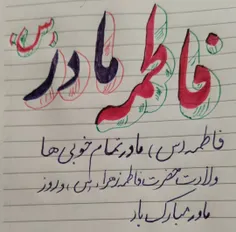 فاطمه مادر (س)
فاطمه (س) مادر تمام خوبی ها
ولادت حضرت فاطمه زهرا (س) و روز
مادر مبارک باد